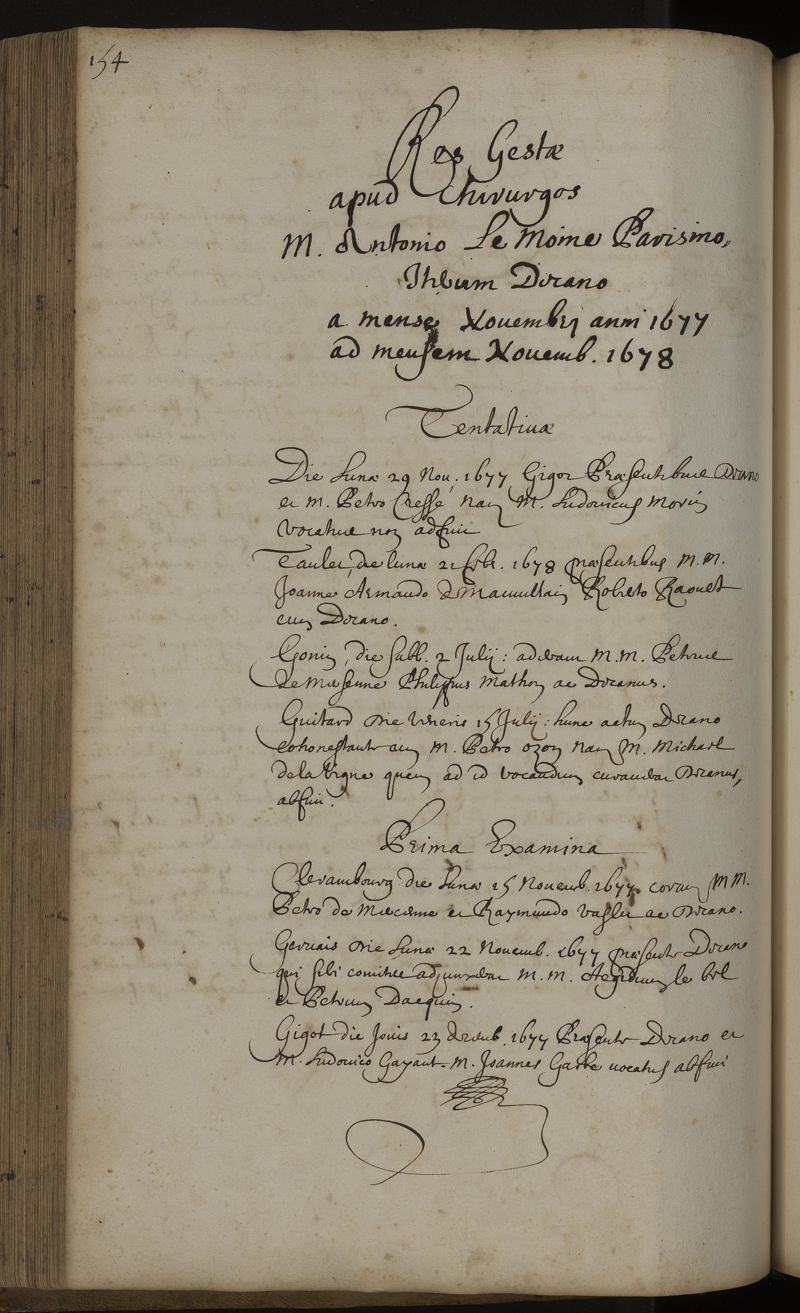 154
Res Gestæ
apud Chirurgos
M. Antonio Le Moine Parisino,
Iterum Decano
a mense Novembrj anni 1677
ad mensem Novemb. 1678
Tentativæ
Die Lunæ 29 Nov. 1677 Gigot Præsentibus Decano
et M. Petro Cressé nam M. Ludovicus Morin
vocatus non adfuit
Taulet, die lunæ 21 febr. 1678 præsentibus M. M.
Joanne Armando de Mauvillain Roberto Raoult
cum Decano.
Gonin, die sabb. 2 Julij: aderant M. M. Petrus
de Mersenne Philippus Mathon ac Decanus.
Guitard die veneris 15 Julij: hunc actum Decano
cohonestante cum M. Petro ozon nam M. Michael
de la Vigne quem ad id vocandum curaverat Decanus,
abfuit.
Prima Examina
Clerambourg die Lunæ 15 Novemb. 1677 coram MM.
Petro de Mersenne et Raymundo ac Decano.
Gervais die Lunæ 22 Novemb. 1677 præsente Decano
qui sibi comites adjunxerat M. M. Aegidium le bel
et Petrum Dacquin.
Gigot die Jovis 23 decemb. 1677 Præsente Decano et
M. Ludovico Gayant. M. Joannes Garbe vocatus abfuit